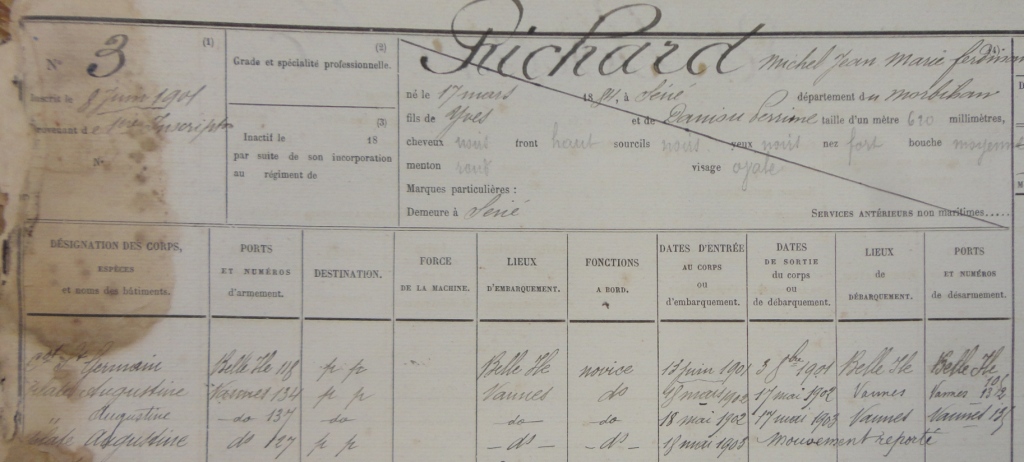 (1)
N° 3
Inscrit le 8 Juin 1901
Provenant de Inscription
N°
(2)
Grade et spécialité professionnelle.
(3)
Inactif le 18
par suite de son incorporation
au régiment de
Richard Michel Jean Marie
né le 17 mars 1884, à Séné département du Morbihan
fils de Yves et de Perrine taille d'un mètre 610 millimètres,
cheveux noirs front haut sourcils noirs yeux noirs nez fort bouche moyenne
menton rond visage ovale
Marques particulières :
Demeure à Séné SERVICES ANTÉRIEURS non maritimes.....
DÉSIGNATION DES CORPS,
ESPÈCES
et noms des bâtiments.
PORTS
ET NUMÉROS
d'armement.
DESTINATION.
FORCE
DE LA MACHINE.
LIEUX
D'EMBARQUEMENT.
FONCTIONS
A BORD.
DATES D'ENTRÉE
AU CORPS
OU
d'embarquement.
DATES
DE SORTIE
du corps
OU
de débarquement.
LIEUX
de
DÉBARQUEMENT.
PORTS
ET NUMÉROS
de désarmement.
St Germain Belle Ile 118 p p Belle Ile novice 13 juin 1901 3 8bre 1901 Belle Ile Belle Ile
Augustine Vannes 134 p p Vannes do mars 1902 17 mai 1902 Vannes Vannes
Augustine do 137 do do do 18 mai 1902 17 mai 1903 Vannes Vannes
Augustine do 127 p p do do 18 mai 1903 Mouvement reporté